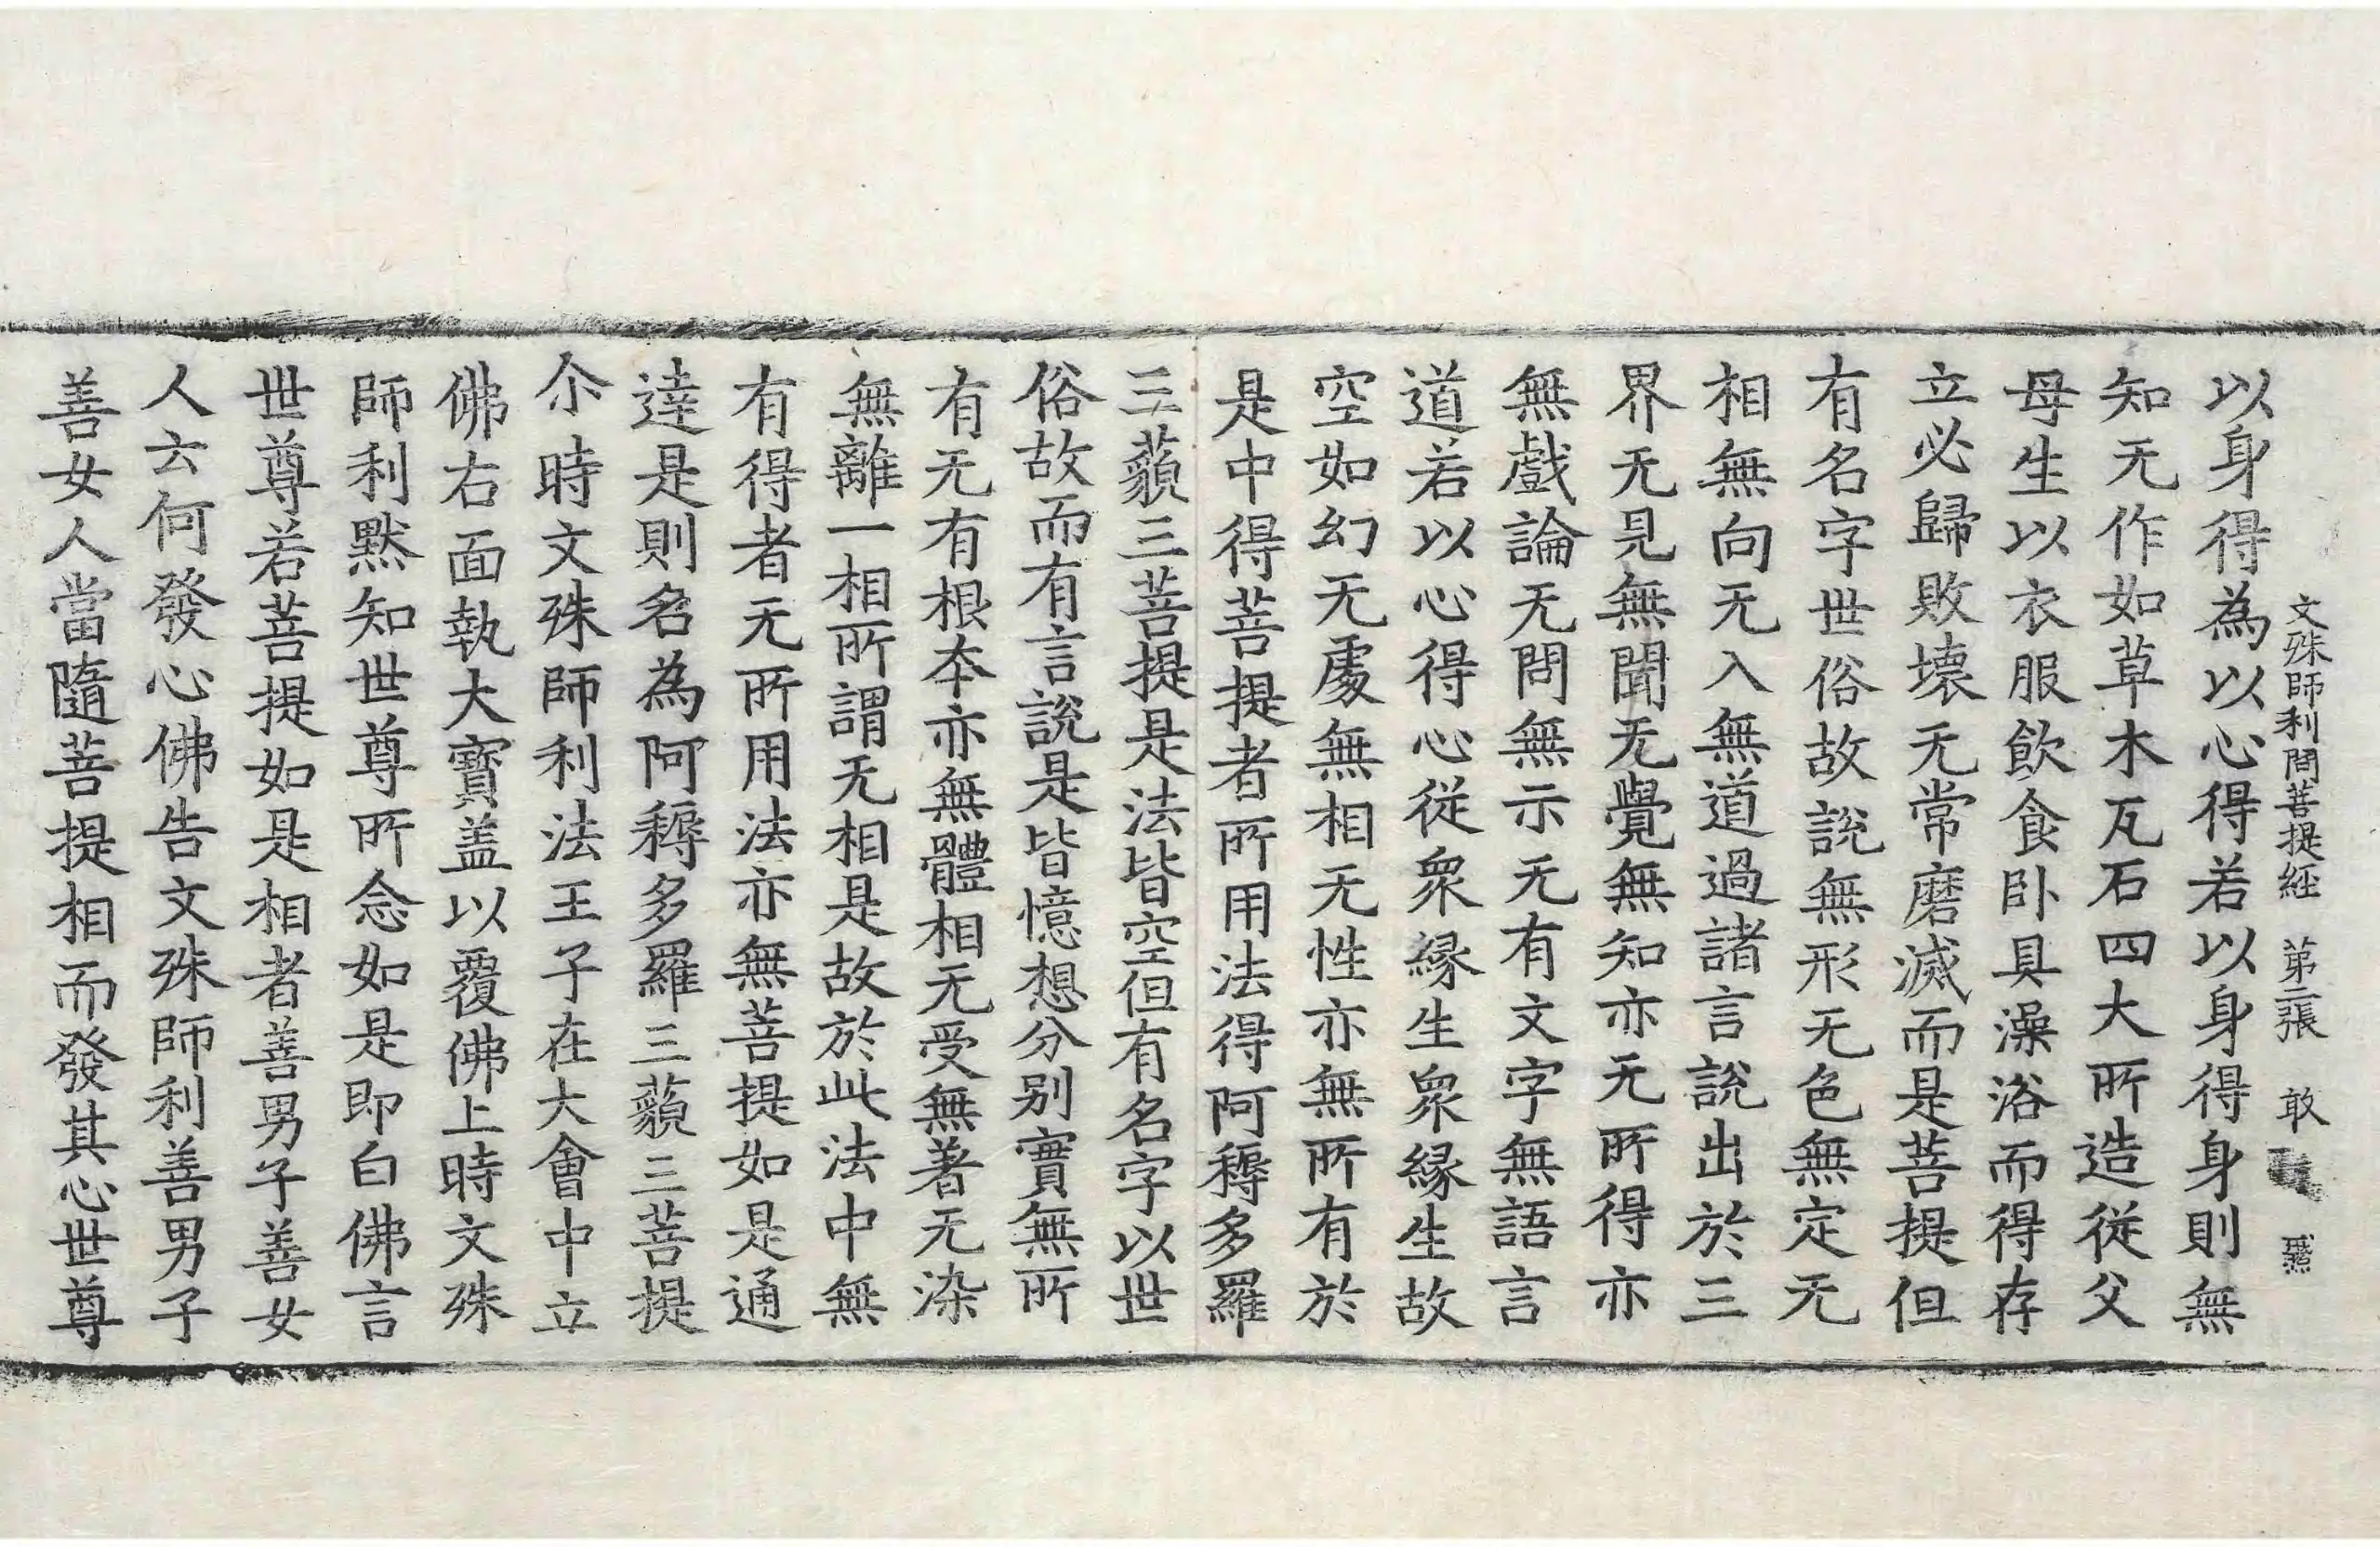 文殊師利問菩提經 第二張 敢
以身得為以心得若以身得身則無
知无作如草木瓦石四大所造従父
母生以衣服飲食卧具澡浴而得存
立必歸敗壞无常磨滅而是菩提但
有名字世俗故說無形无色無定无
相無向无入無道過諸言說出於三
界无見無聞无覺無知亦无所得亦
無戲論无問無示无有文字無語言
道若以心得心従衆緣生衆緣生故
空如幻无處無相无性亦無所有於
是中得菩提者所用法得阿耨多羅
三藐三菩提是法皆空但有名字以世
俗故而有言說是皆憶想分別實無所
有无有根本亦無體相无受無著无染
無離一相所謂无相是故於此法中無
有得者无所用法亦無菩提如是通
達是則名為阿耨多羅三藐三菩提
尒時文殊師利法王子在大會中立
佛右面執大寶盖以覆佛上時文殊
師利默知世尊所念如是即白佛言
世尊若菩提如是相者善男子善女
人云何發心佛告文殊師利善男子
善女人當隨菩提相而發其心世尊